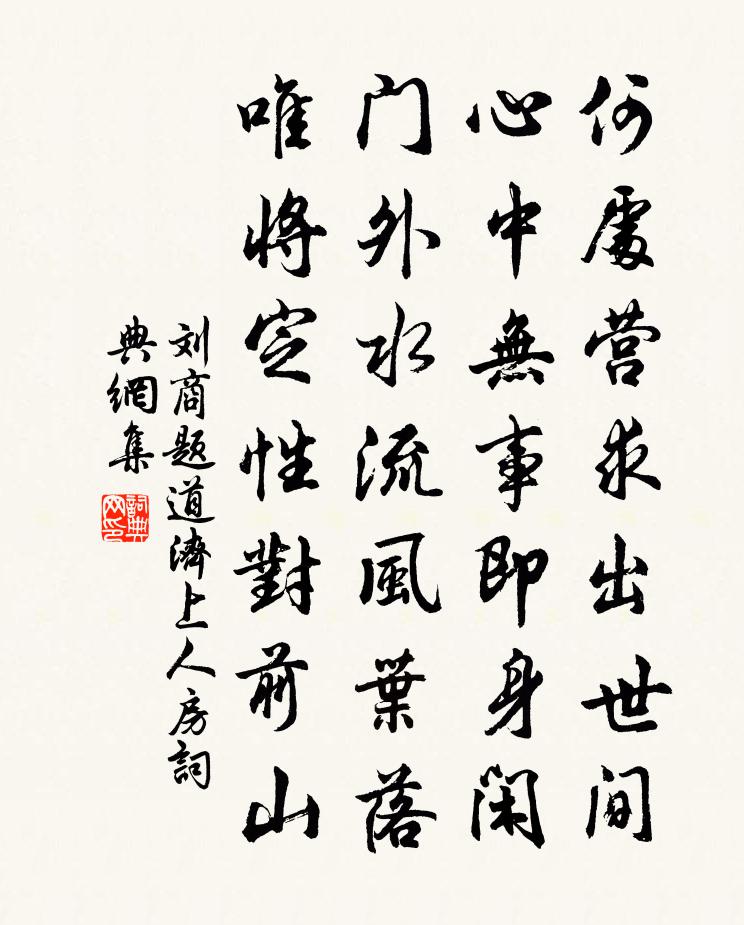 何處营求出世间
心中無事即身閑
门外水流風葉落
唯將定性對前山
刘商题道濟上人房詞
典網集
詞典
网印